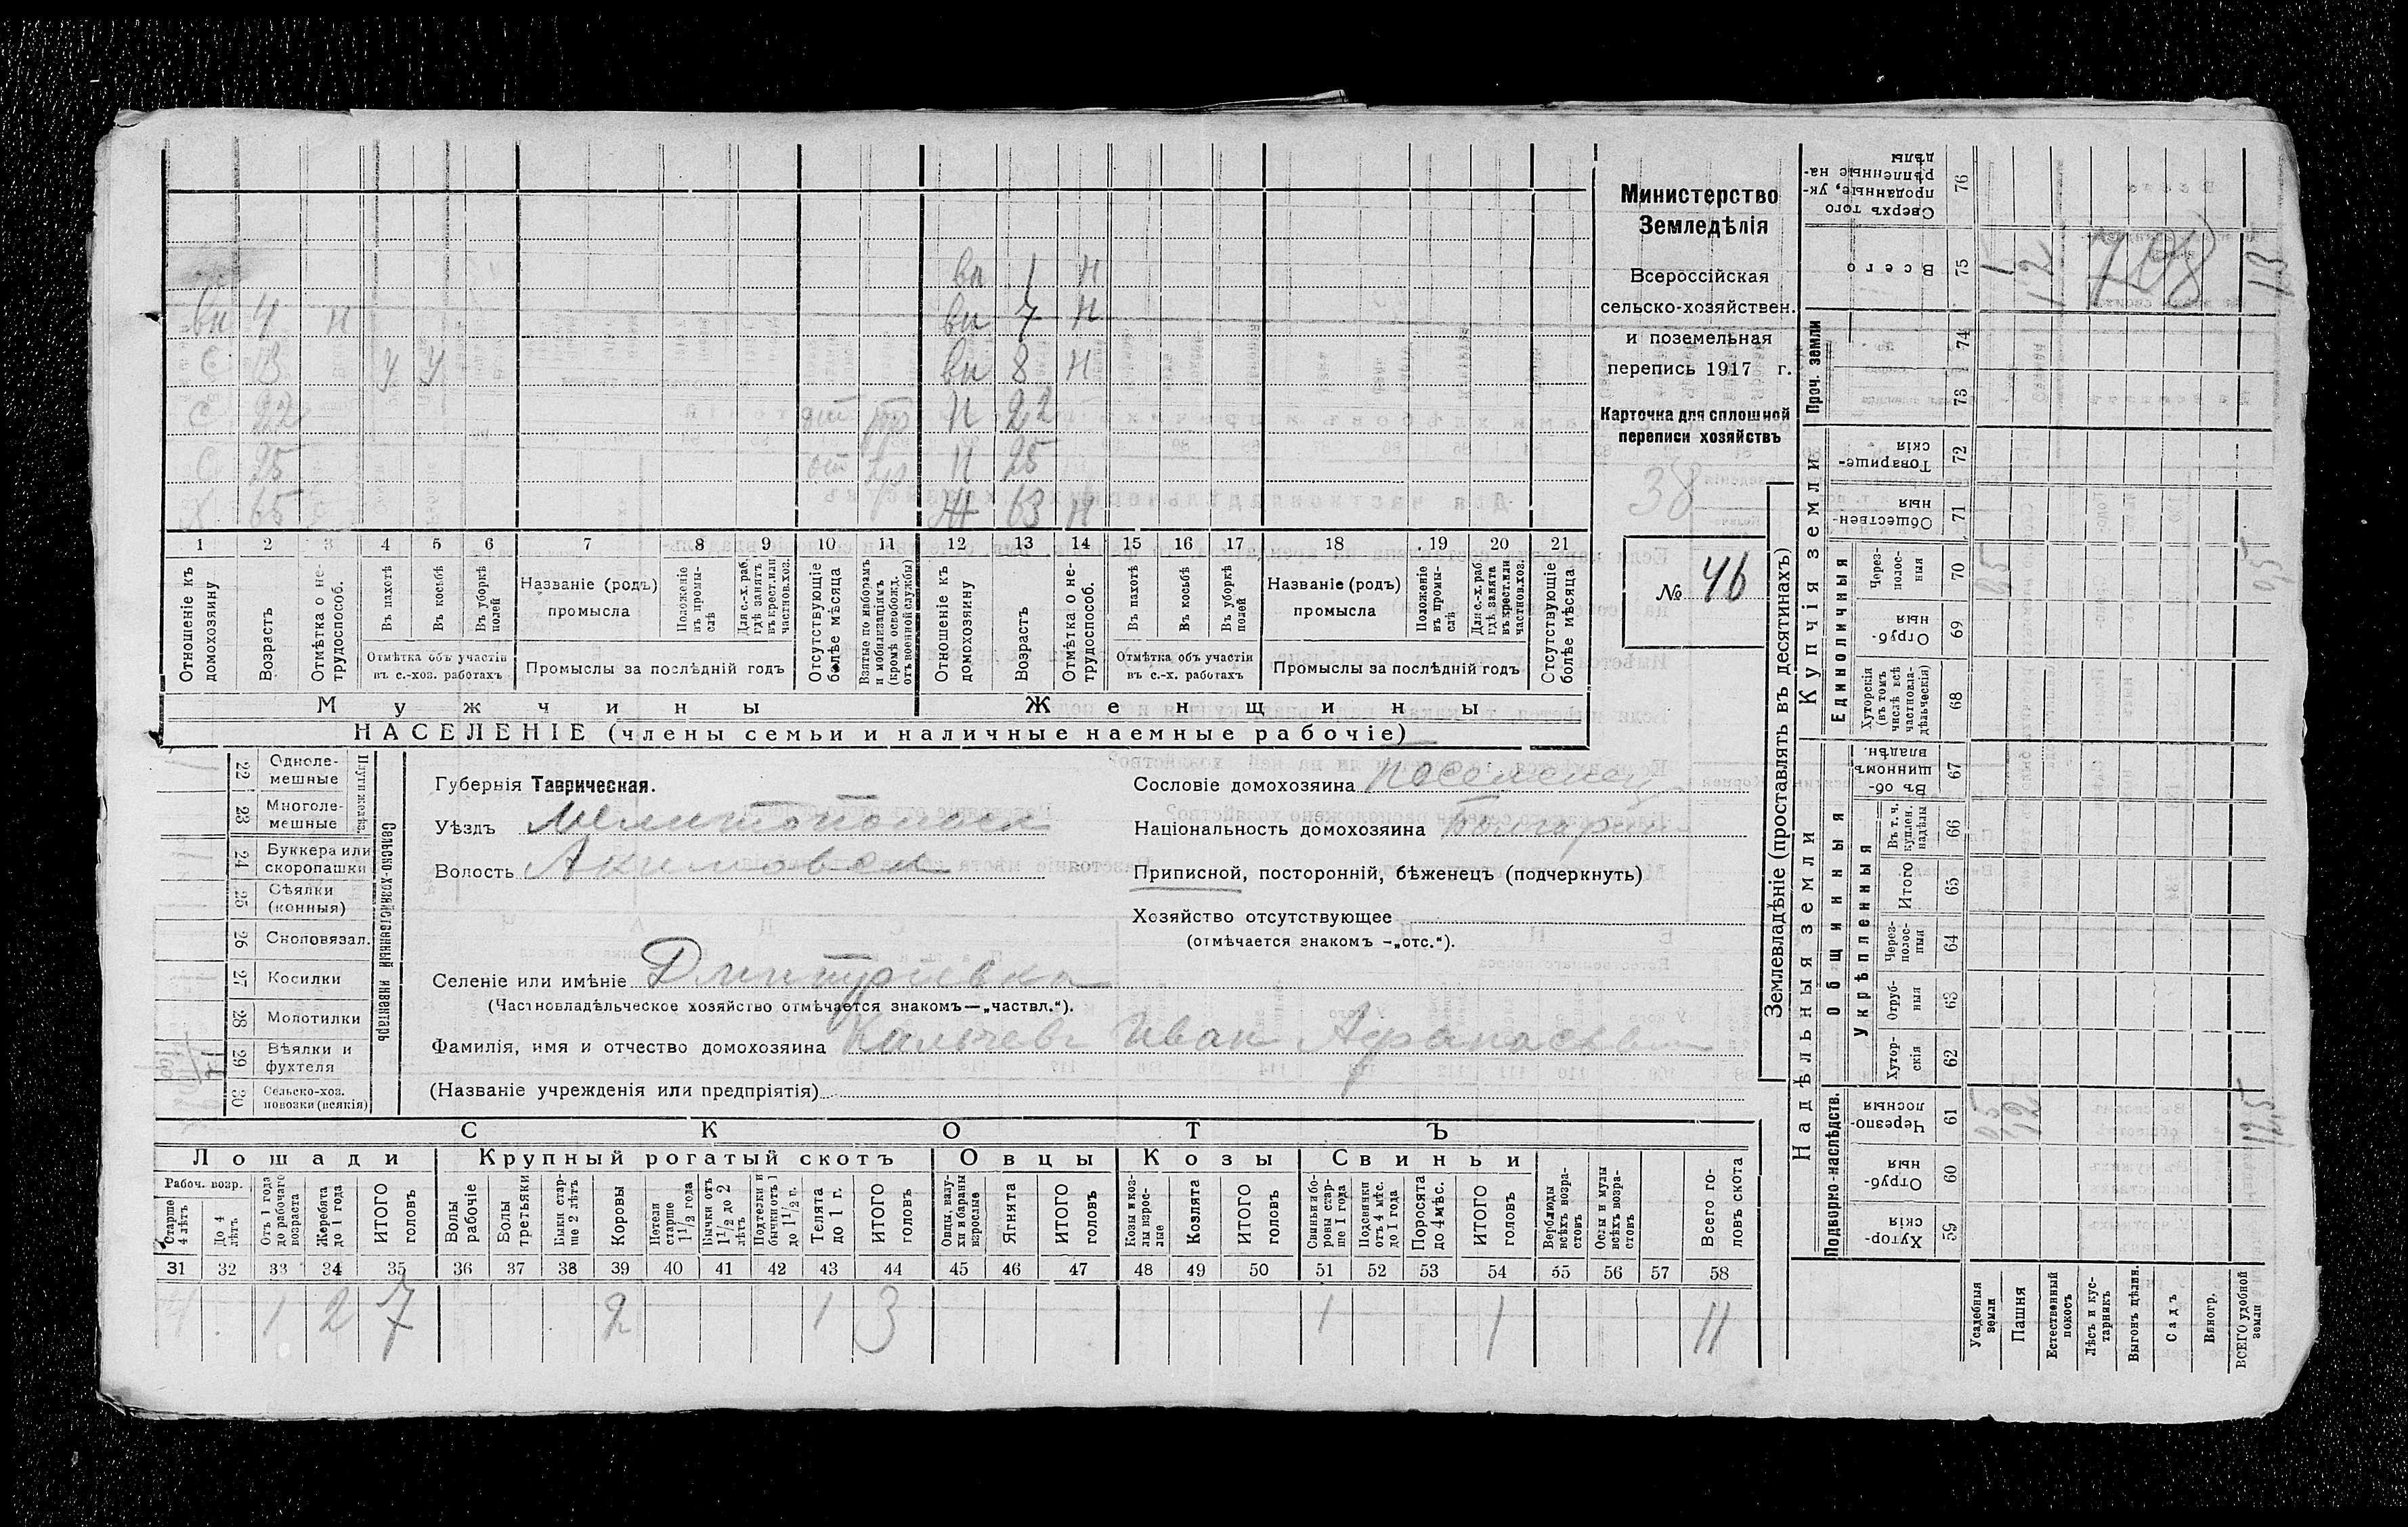 Министерство
Земледѣлія
Всероссійская
сельско-хозяйствен.
и поземельная
перепись 1917 г.
Карточка для сплошной
переписи хозяйствъ
38
№ 46
вп 1 н
вн 4 н вн 7 н
С 13 У У вн 8 н
С 22 от Н 22
С 25 от Н 25
Х 65 Ж 63 Н
1 2 3 4 5 6 7 8 9 10 11 12 13 14 15 16 17 18 19 20 21
Отношеніе къ домохозяину
Возрастъ
Отмѣтка о не-трудоспособ.
Въ пахотѣ
Въ косьбѣ
Въ уборкѣ полей
Отмѣтка объ участіи въ с.-хоз. работахъ
Названіе (родъ) промысла
Положеніе въ промы-слѣ
Для с.-х. раб. гдѣ занятъ въ крест. или частнов. хоз.
Промыслы за послѣдній годъ
Отсутствующіе болѣе мѣсяца
Взятые по наборамъ и мобилизаціямъ (кромѣ освобожд. отъ военной службы)
Отношеніе къ домохозяину
Возрастъ
Отмѣтка о не-трудоспособ.
Въ пахотѣ
Въ косьбѣ
Въ уборкѣ полей
Отмѣтка объ участіи въ с.-х. работахъ
Названіе (родъ) промысла
Положеніе въ промы-слѣ
Для с.-х. раб. гдѣ занята въ крест. или частнов. хоз.
Промыслы за послѣдній годъ
Отсутствующіе болѣе мѣсяца
Мужчины Женщины
НАСЕЛЕНІЕ (члены семьи и наличные наемные рабочіе)
Сельско-хозяйственный инвентарь
Плуги желѣз.
22 Одноле-мешные
23 Многоле-мешные
24 Буккера или скоропашки
25 Сѣялки (конныя)
26 Сноповязал.
27 Косилки
28 Молотилки
29 Вѣялки и фухтеля
30 Сельско-хоз. повозки (всякія)
Губернія Таврическая.
Уѣздъ Мелитопольск
Волость Акимовск
Селеніе или имѣніе Дмитріевка
(Частновладѣльческое хозяйство отмѣчается знакомъ—„частвл.“).
Фамилія, имя и отчество домохозяина Калчев Иван Афанасьевич
(Названіе учрежденія или предпріятія)
Сословіе домохозяина поселенец
Національность домохозяина Болгарин
Приписной, посторонній, бѣженецъ (подчеркнуть)
Хозяйство отсутствующее
(отмѣчается знакомъ —„отс.“).
СКОТЪ
Лошади Крупный рогатый скотъ Овцы Козы Свиньи
Рабоч. возр.
Старше 4 лѣтъ
До 4 лѣтъ
Отъ 1 года до рабочаго возраста
Жеребята до 1 года
ИТОГО головъ
Волы рабочіе
Волы третьяки
Быки стар-ше 2 лѣтъ
Коровы
Нетели старше 1 1/2 года
Бычки отъ 1 1/2 до 2 лѣтъ
Подтелки и бычки отъ 1 до 1 1/2 г.
Телята до 1 г.
ИТОГО головъ
Овцы, валу-хи и бараны взрослые
Ягнята
ИТОГО головъ
Козы и коз-лы взрос-лые
Козлята
ИТОГО головъ
Свиньи и бо-ровы стар-ше 1 года
Подсвинки отъ 4 мѣс. до 1 года
Поросята до 4 мѣс.
ИТОГО головъ
Верблюды всѣхъ возра-стовъ
Ослы и мулы всѣхъ возра-стовъ
Всего го-ловъ скота
31 32 33 34 35 36 37 38 39 40 41 42 43 44 45 46 47 48 49 50 51 52 53 54 55 56 57 58
4 1 2 7 2 1 3 1 1 11
Землевладѣніе (проставлять въ десятинахъ)
Надѣльныя земли
Купчія земли
Проч. земли
Подворно-наслѣдств.
Общинныя
Укрѣпленныя
Единоличныя
Сверхъ того проданные, ук-рѣпленные на-дѣлы 76
Всего 75
74
73
Товарище-скія 72
Обществен-ныя 71
Через-полос-ныя 70
Отруб-ныя 69
Хуторскія (въ томъ числѣ всѣ частновла-дѣльческія) 68
Въ об-щинномъ владѣн. 67
Въ т. ч. куплен. надѣлы 66
Итого 65
Через-полос-ныя 64
Отруб-ныя 63
Хутор-скія 62
Черезпо-лосныя 61
Отруб-ныя 60
Хутор-скія 59
Усадебныя земли
Пашня
Естественный покосъ
Лѣсъ и кус-тарникъ
Выгонъ цѣлин.
Садъ
Виногр.
ВСЕГО удобной земли
1 12 13
05 05
05 12 125